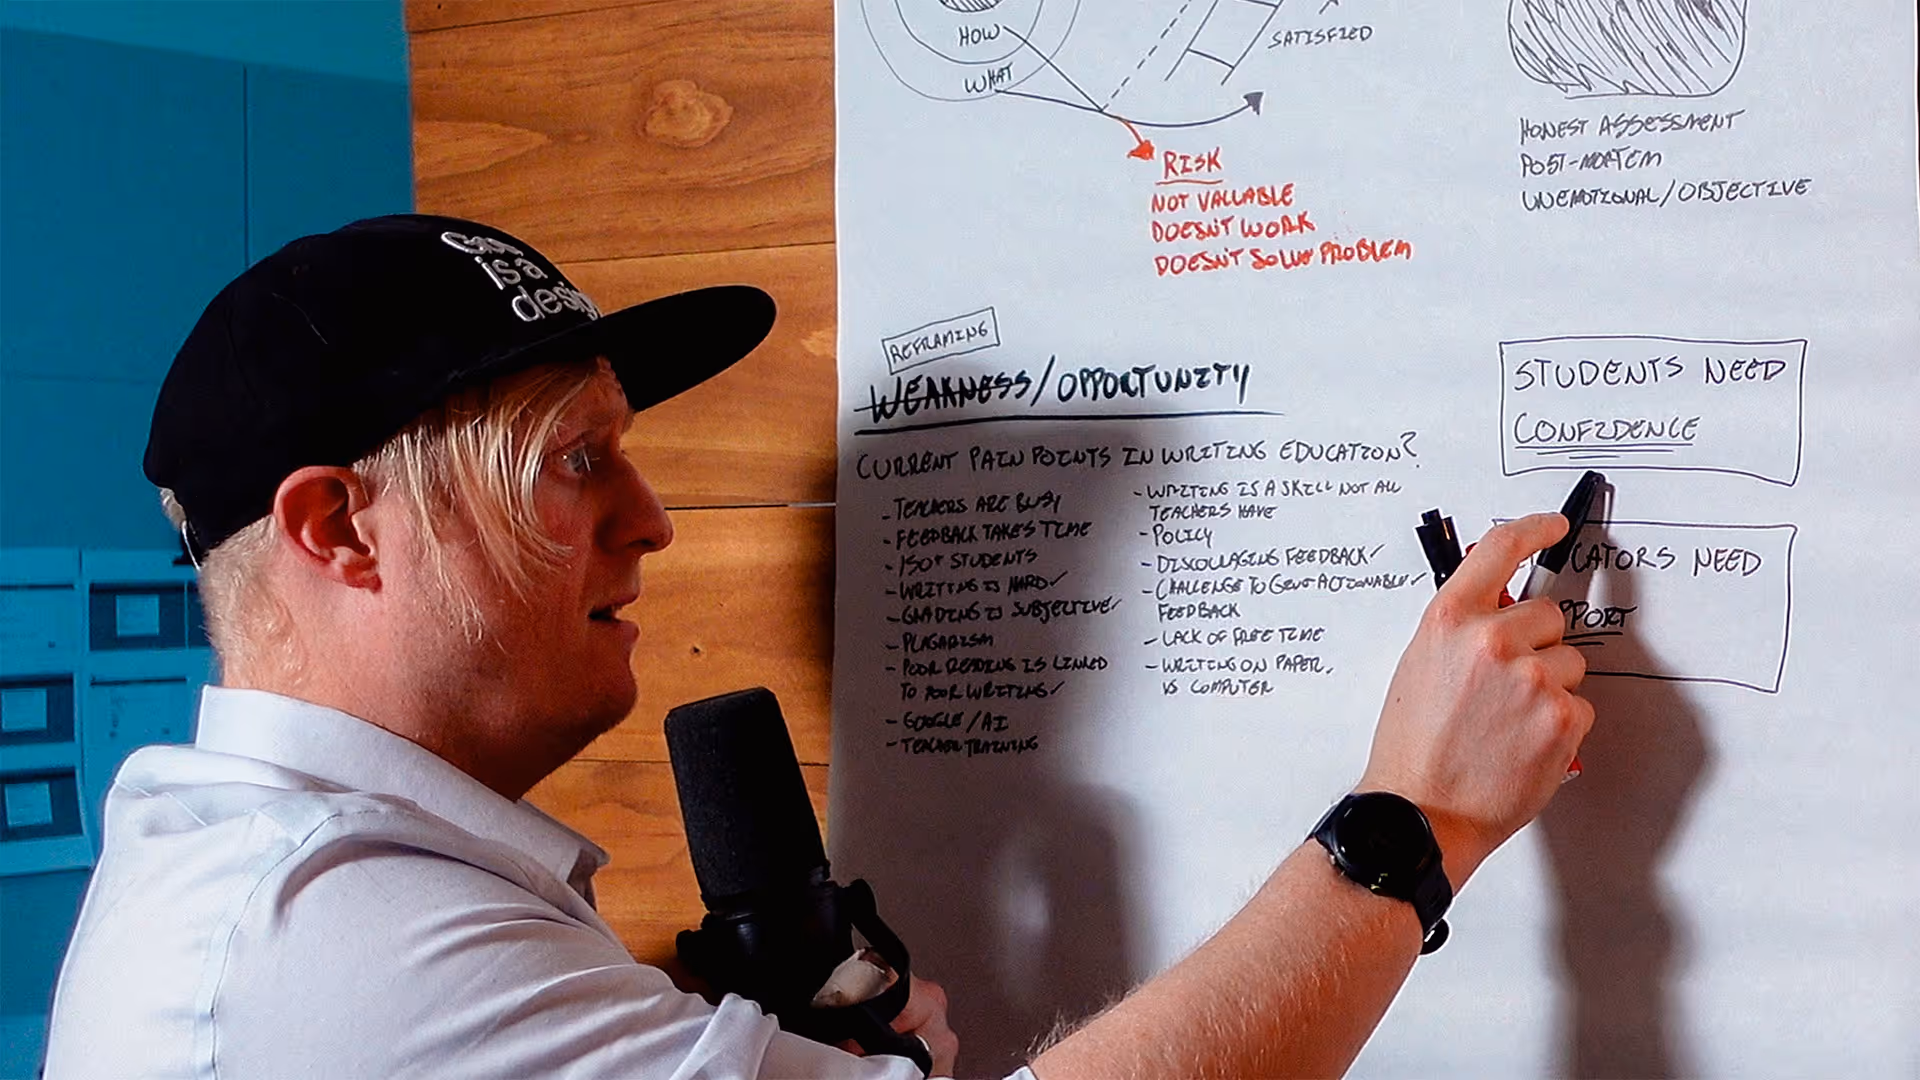 HOW
WHAT
SATISFIED
RISK
NOT VALUABLE
DOESN'T WORK
DOESN'T SOLVE PROBLEM
HONEST ASSESSMENT
POST-MORTEM
UNEMOTIONAL/OBJECTIVE
is a
REFRAMING
WEAKNESS/OPPORTUNITY
CURRENT PAIN POINTS IN WRITING EDUCATION?
- TEACHERS ARE BUSY
- FEEDBACK TAKES TIME
- 150+ STUDENTS
- WRITING IS HARD ✓
- GRADING IS SUBJECTIVE ✓
- PLAGARISM
- POOR READING IS LINKED
TO POOR WRITING ✓
- GOOGLE/AI
- TEACHER TRAINING
- WRITING IS A SKILL NOT ALL
TEACHERS HAVE
- POLICY
- DISCOURAGING FEEDBACK ✓
- CHALLENGE TO GIVE ACTIONABLE ✓
FEEDBACK
- LACK OF FREE TIME
- WRITING ON PAPER
VS COMPUTER
STUDENTS NEED
CONFIDENCE
NEED